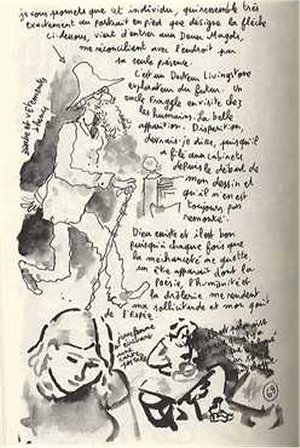 je vous promets que cet individu, qui ressemble très
exactement au portrait en pied que désigne la flèche
ci-dessous, vient d'entrer aux Deux Magots,
me réconciliant avec l'endroit par
sa seule présence.
C'est un Docteur Livingstone
explorateur du futur. Un
oncle Fraggle en visite chez
les humains. La belle
apparition. Disparition,
devrais-je dire, puisqu'il
a filé aux cabinets
depuis le début de
mon dessin et
qu'il n'en est
toujours pas
remonté.
et vêtements
Dieu existe et il est bon
puisqu'à chaque fois que
la méchanceté me guette
un être apparaît dont la
poésie, l'humanité et
la drôlerie me rendent
ma sollicitude et mon goût
de l'espèce.
jeune femme
écrivant
une carte
postale
69